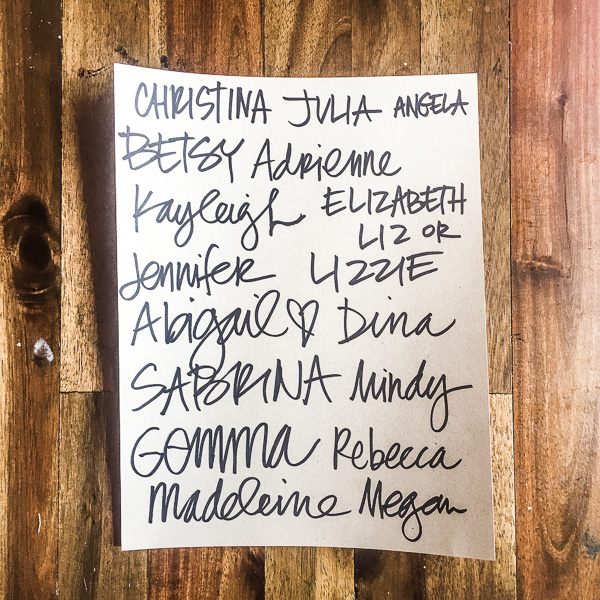 CHRISTINA JULIA ANGELA
BETSY Adrienne
Kayleigh ELIZABETH
LIZ OR
Jennifer LIZZIE
Abigail♡ Dina
SABRINA Mindy
GEMMA Rebecca
Madeleine Megan